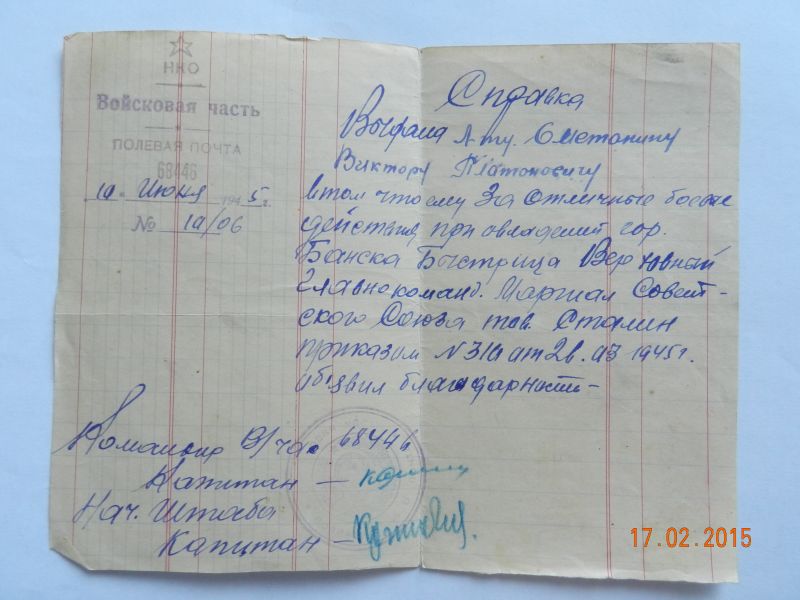 НКО
Войсковая часть
ПОЛЕВАЯ ПОЧТА
68446
10 Июня 1945 г.
№ 10/06
Справка
Выдана л-ту. Сметанину
Виктору Платоновичу
в том что ему За отличные боевые
действия при овладений гор.
Банска Быстрица Верховный
Главнокоманд. Маршал Совет-
ского Союза тов. Сталин
приказом N 310 от 26.03 1945 г.
об'явил благодарность-
Командир В/час 68446
Капитан -
Нач. Штаба
Капитан -
17.02.2015